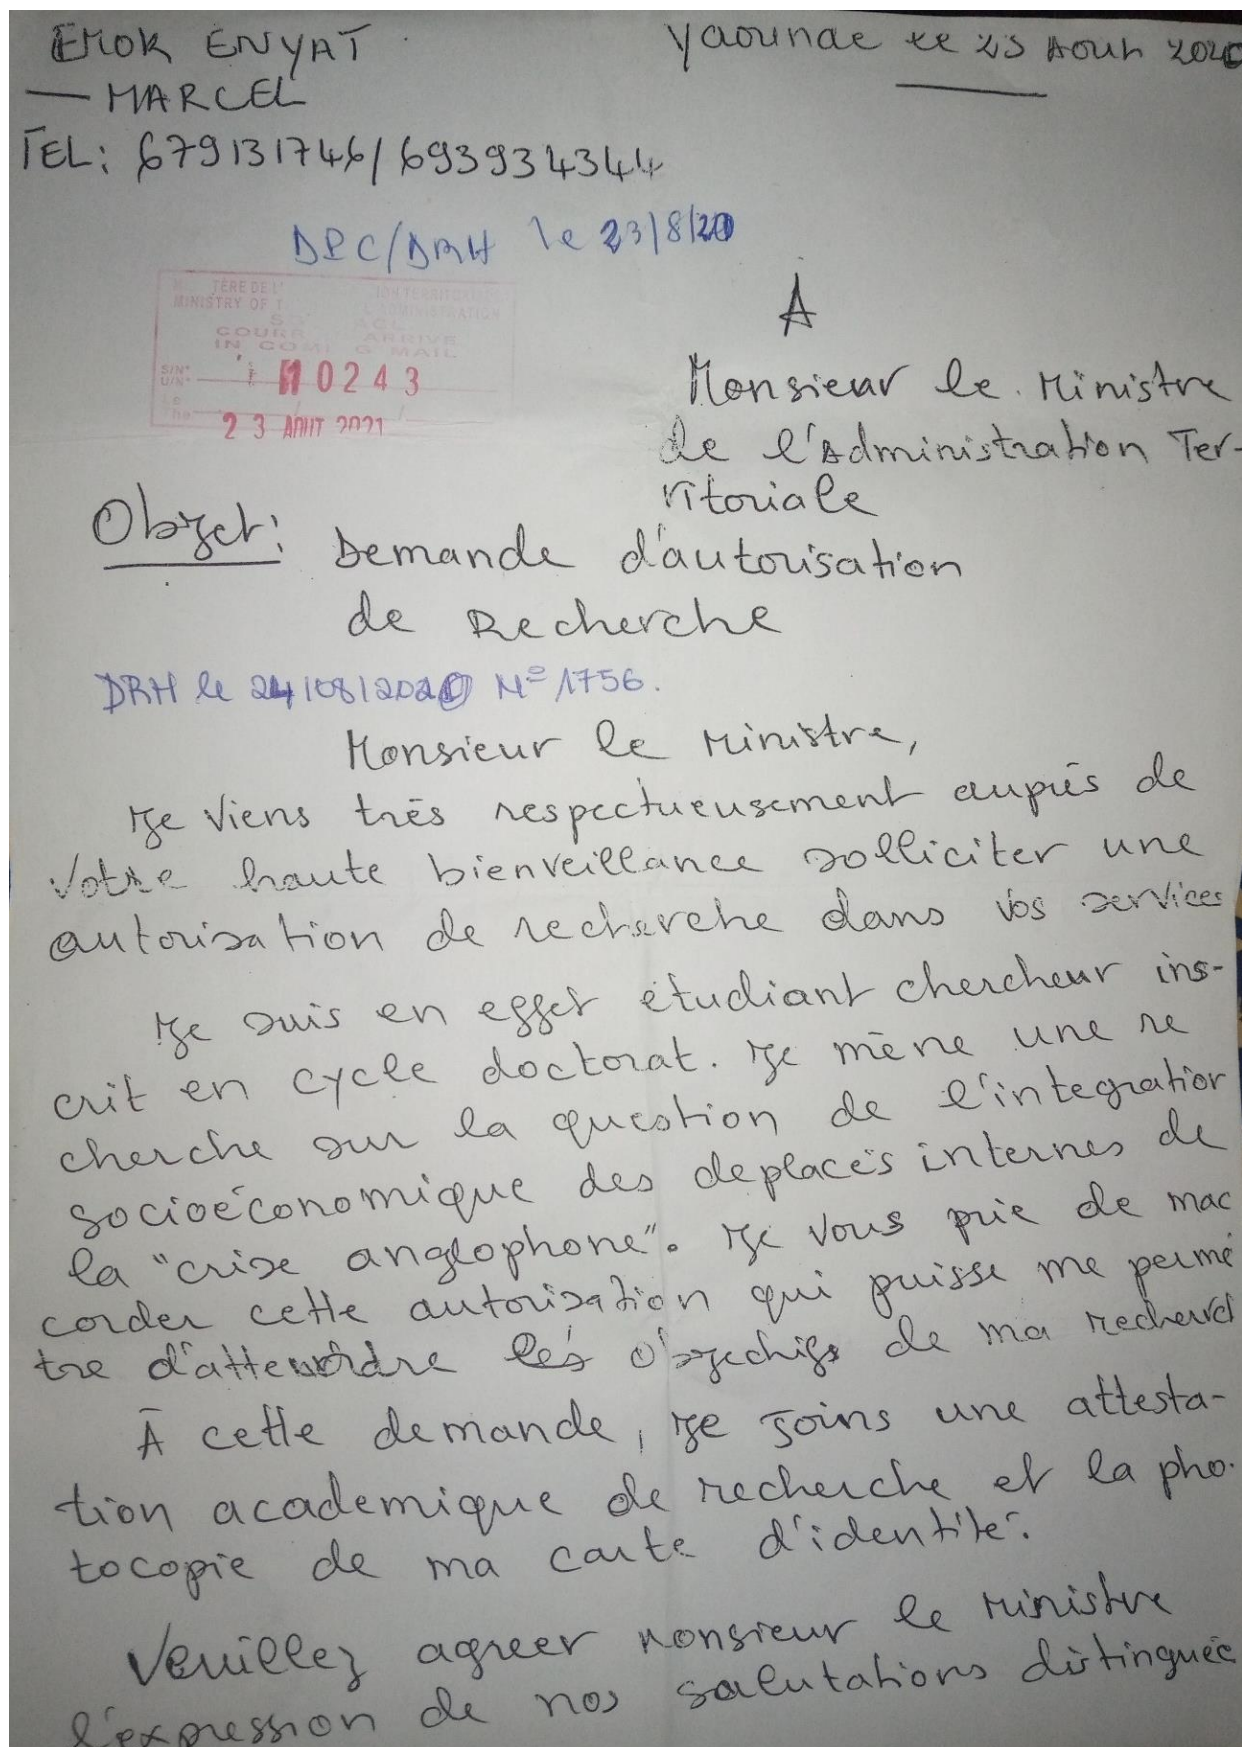 EMOK ENYAT
MARCEL
Yaounde le 23 Aout
TEL: 679131746/693934344
DPC/DRH le 23/8/20
TERE DE L'
MINISTRY OF
ADMINISTRATION
ARRIVE
MAIL
10243
23 AOUT 2021
A
Monsieur le Ministre
de l'Administration Ter-
ritoriale
Objet: Demande d'autorisation
de Recherche
DRH le 24/08/2020 N° 1756.
Monsieur le Ministre,
Je viens très respectueusement auprès de
votre haute bienveillance solliciter une
autorisation de recherche dans vos services
Je suis en effet étudiant chercheur ins-
crit en cycle doctorat. Je mène une re
cherche sur la question de l'integration
socioéconomique des deplacés internes de
la "crise anglophone". Je vous prie de mac
corder cette autorisation qui puisse me permé
tre d'attendre les objectifs de ma recherch
À cette demande, je joins une attesta-
tion academique de recherche et la pho-
tocopie de ma carte d'identité.
Veuillez agreer Monsieur le Ministre
l'expression de nos salutations distinguée